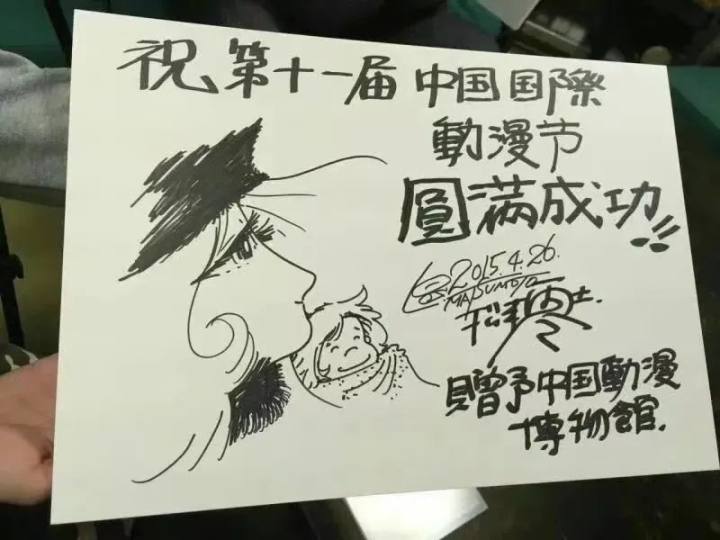 祝第十一届中国国際
動漫节
圓滿成功!!
2015.4.26.
MATSUMOTO
松本零士.
贈予中国動漫
博物館.